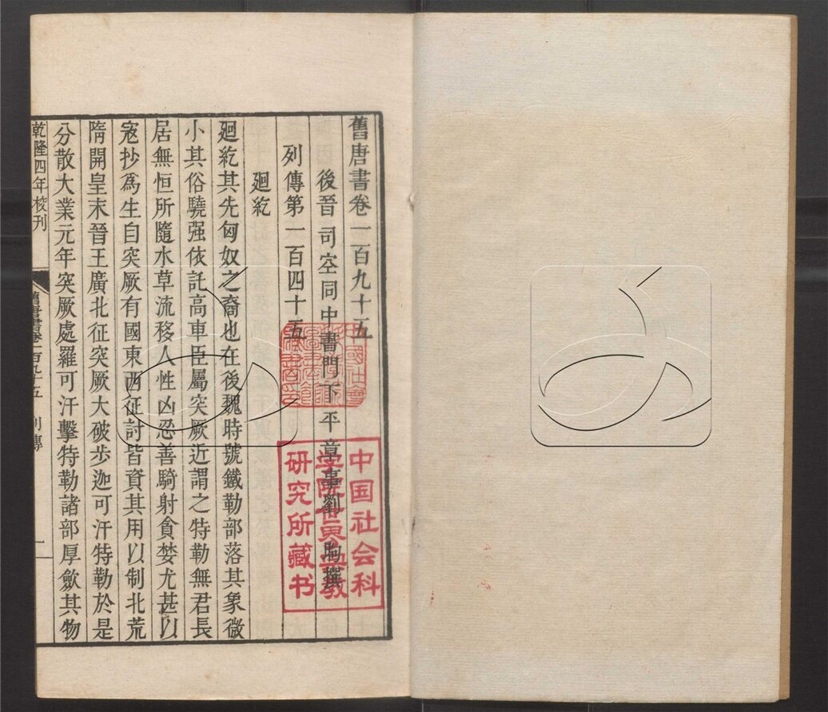 舊唐書卷一百九十五
後晉司空同中書門下平章事劉昫撰
列傳第一百四十五
廻紇
廻紇其先匈奴之裔也在後魏時號鐵勒部落其象微
小其俗驍强依託高車臣屬突厥近謂之特勒無君長
居無恒所隨水草流移人性凶忍善騎射貪婪尤甚以
寇抄爲生自突厥有國東西征討皆資其用以制北荒
隋開皇末晉王廣北征突厥大破步迦可汗特勒於是
分散大業元年突厥處羅可汗擊特勒諸部厚歛其物
乾隆四年校刊
舊唐書卷一百九十五 列傳
一
中国社会科
学院世宗教
研究所藏书